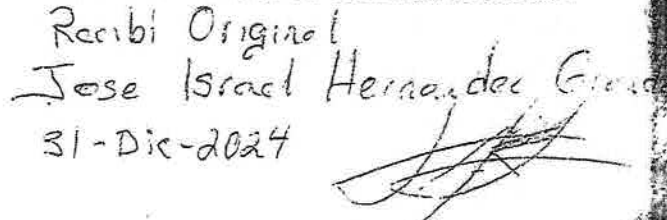 Recibi Original
Jose Israel Hernandez
31-Dic-2024